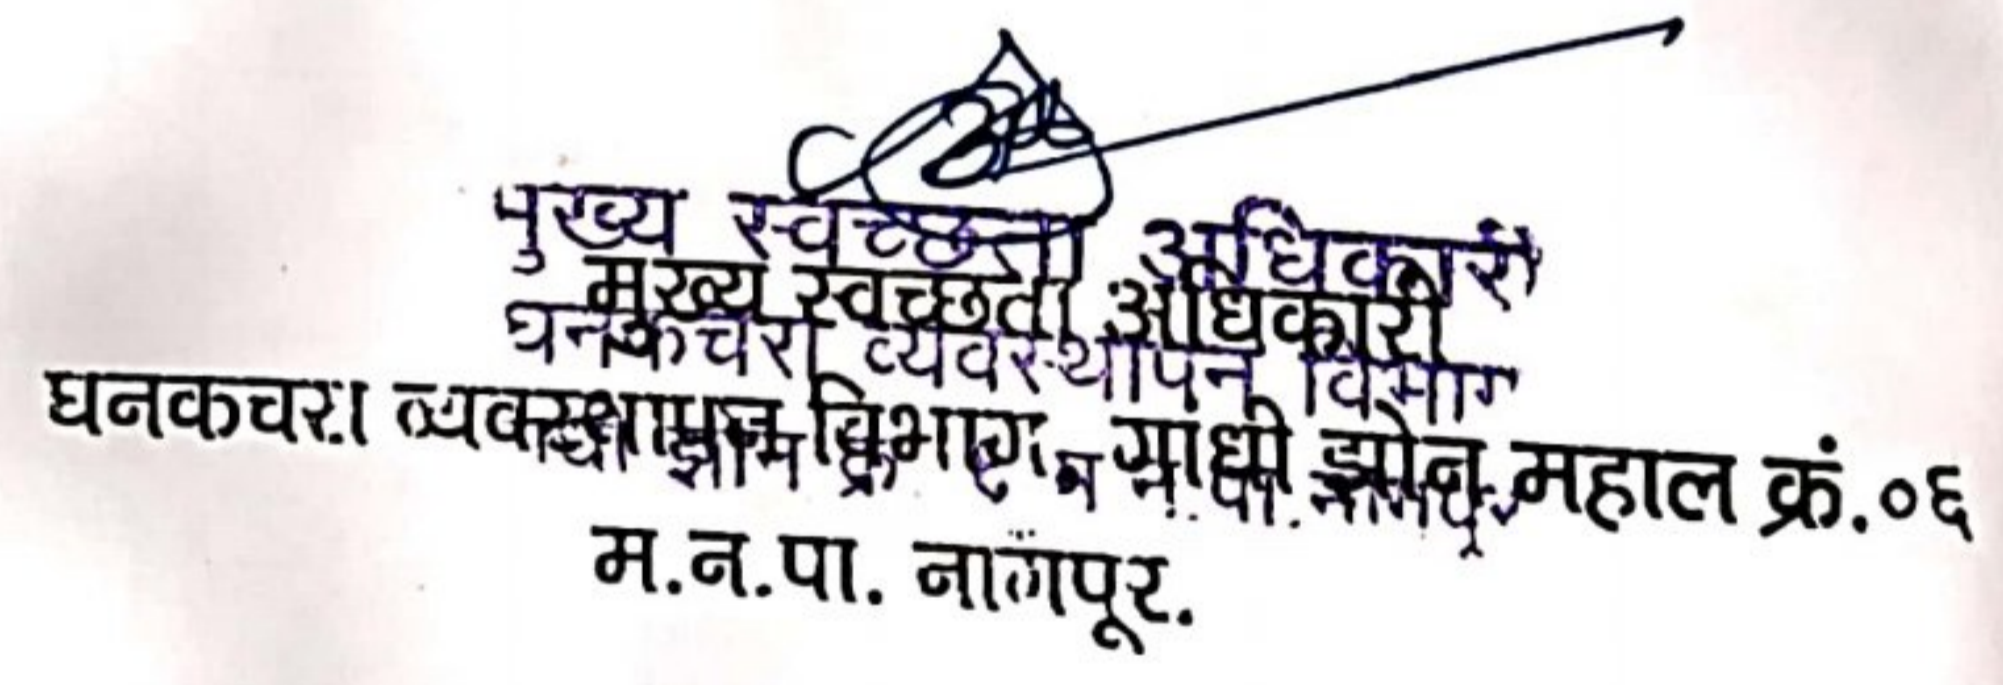 मुख्य स्वच्छता अधिकारी
मुख्य स्वच्छता अधिकारी
घनकचरा व्यवस्थापन विभाग
घनकचरा व्यवस्थापन विभाग, गांधी झोन महाल क्रं.०६
झोन क्र म.न.पा. नागपूर
म.न.पा. नागपूर.